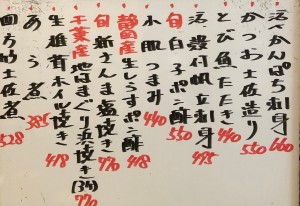 活かんぱち刺身 660
かつお土佐造り
とび魚たたき 440
活殻付帆立刺身 475
旬白子ポン酢 550
小肌つまみ 440
静岡産生しらすポン酢 418
旬新さんま塩焼き 770
千葉産地はまぐり浜焼き(3ヶ) 770
生椎茸ホイル焼き 418
あら煮 385
四方竹土佐煮 528